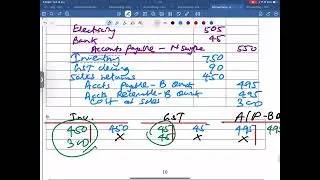 Electricity 505
Bank 45
Accounts Payable - N 550
Inventory 750
GST clearing 90
Sales returns 450
Accts Payable - B Ount 495
Accts Receivable - B Ount 495
Cost of sales 300
Inv. GST A/P - BO
450 450 45 45 495 495
300 x 45 x x